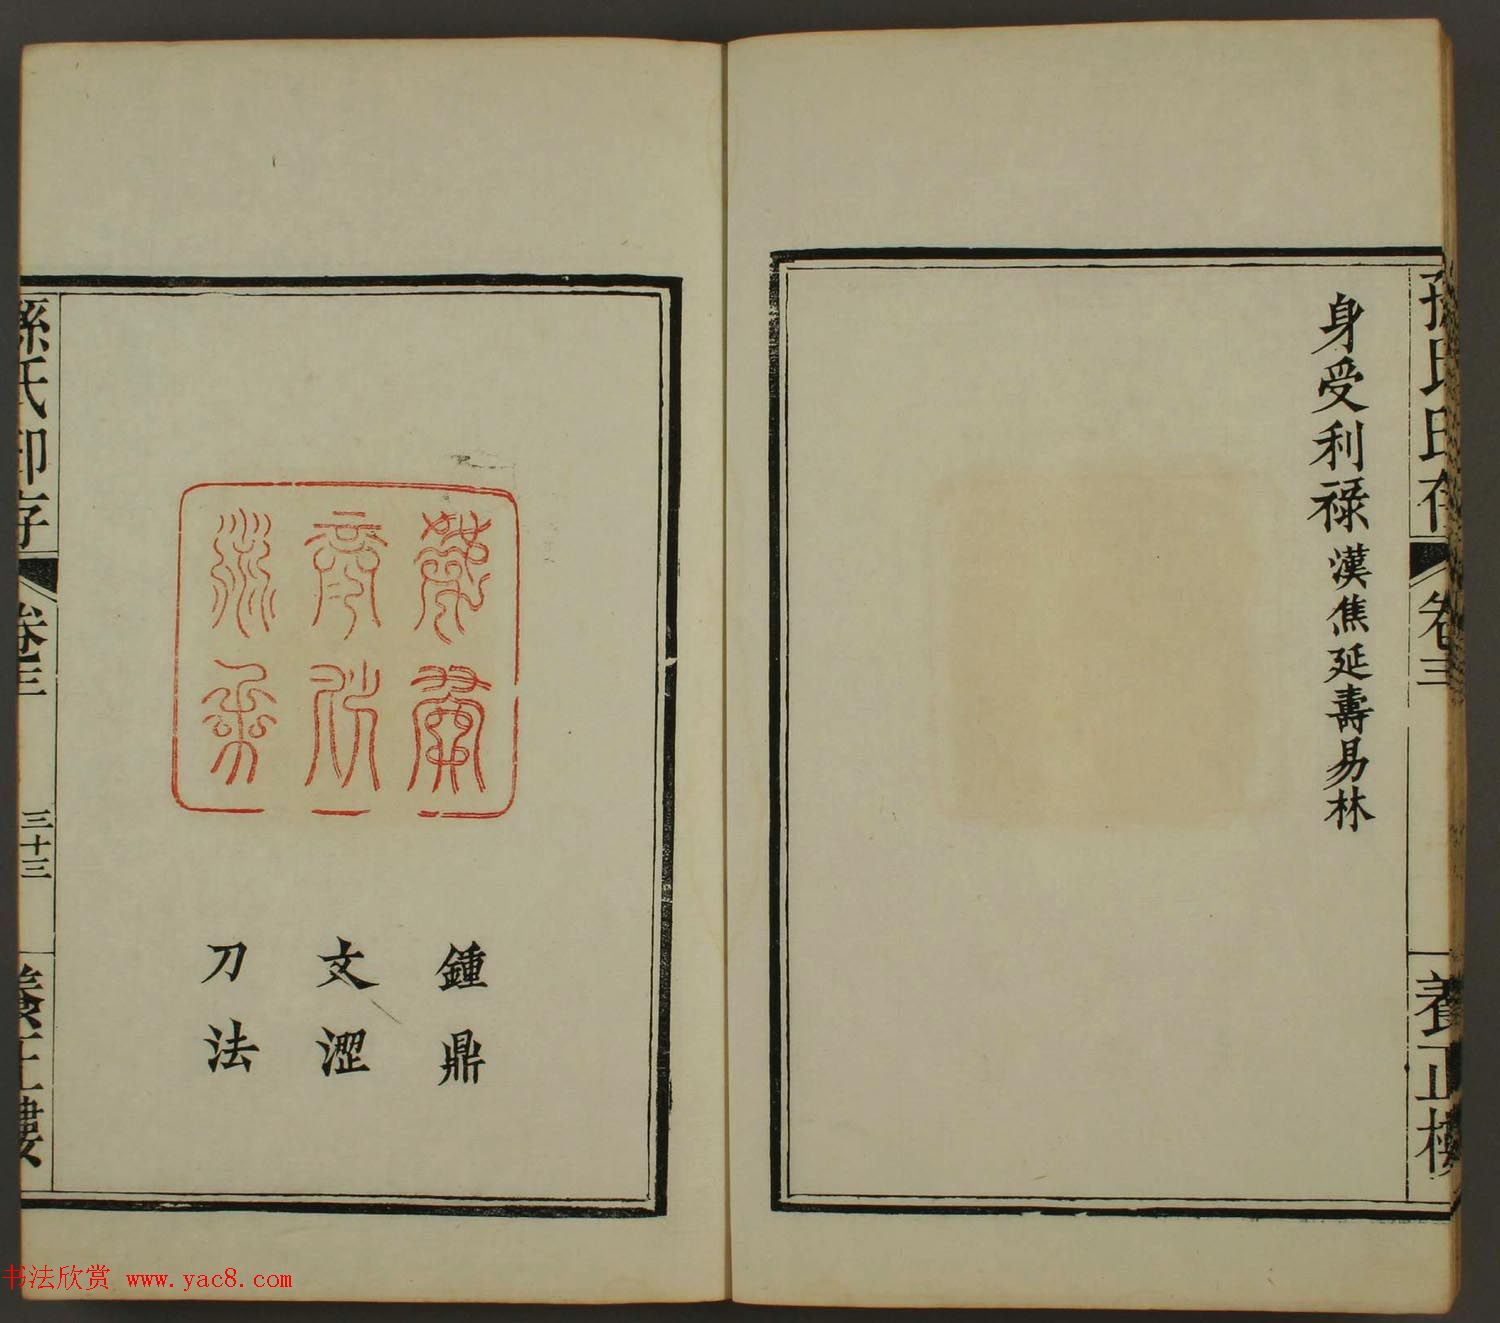 孫氏印存
卷三
養正樓
身受利祿 漢焦延壽易林
鍾鼎
文澀
刀法
孫氏印存
卷三
三十三
養正樓
书法欣赏 www.yac8.com